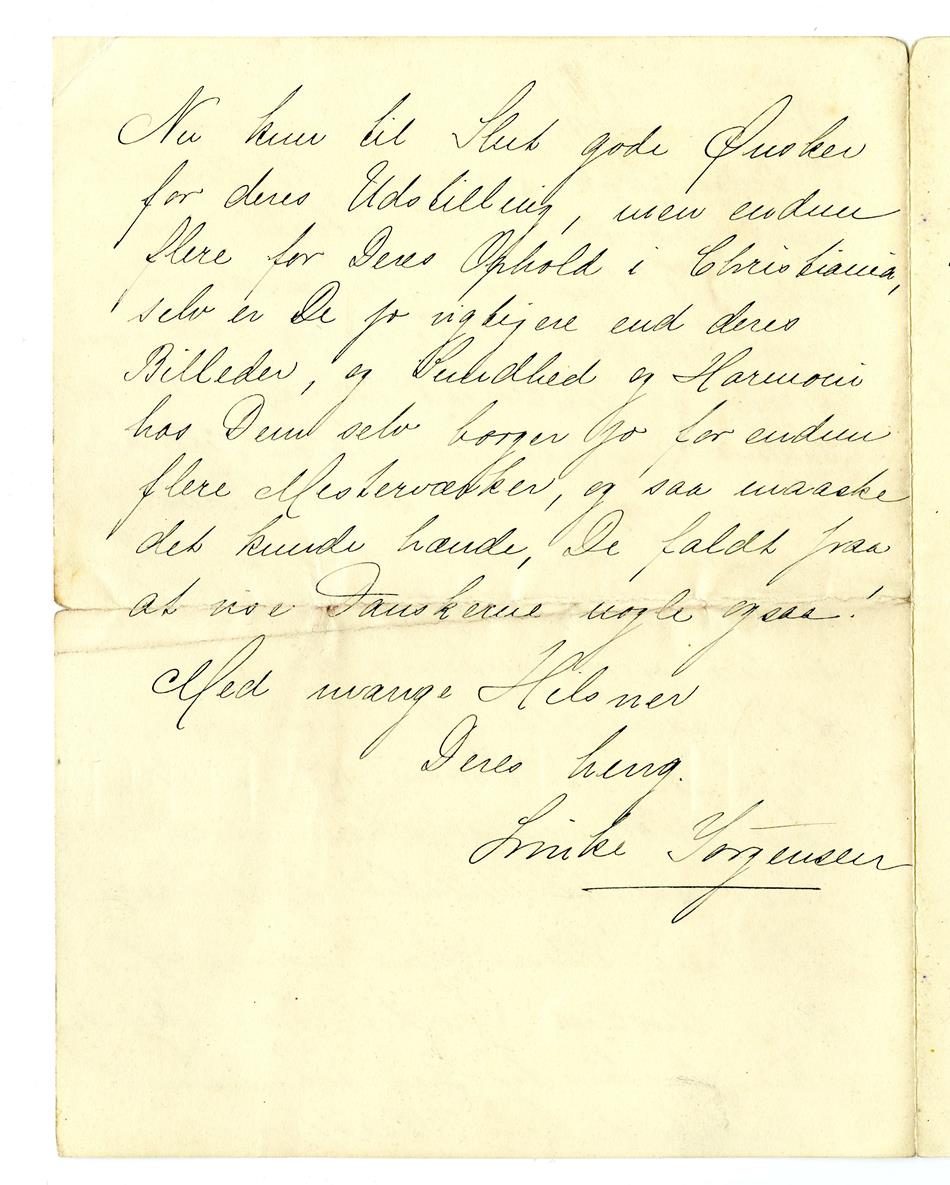 Nu kun til Slut gode Ønsker
for deres Udstilling, men endnu
flere for Deres Ophold i Christiania,
selv er De jo vigtigere end deres
Billeder, og Sundhed og Harmoni
hos Dem selv borger jo for endnu
flere Mesterværker, og saa maaske
det kunde hænde, De faldt paa
at vise Danskerne nogle ogsaa!
Med mange Hilsner
Deres heng.
Jørgensen